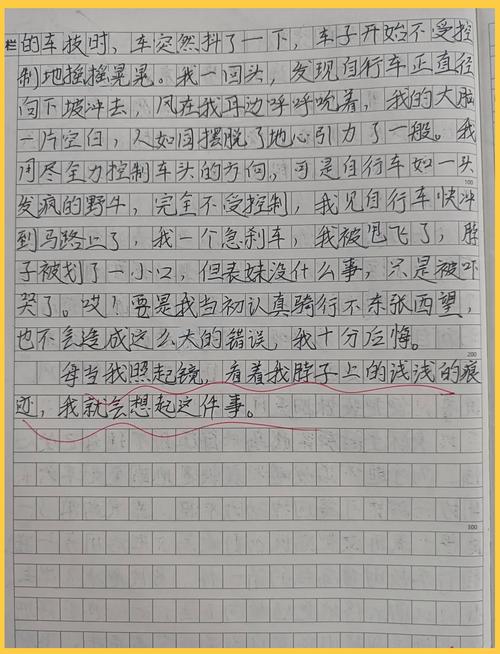 的车技时，车突然抖了一下，车子开始不受控
制地摇摇晃晃。我一回头，发现自行车正直径
向下坡冲去，风在我耳边呼呼吹着，我的大脑
一片空白，人如同摆脱了地心引力了一般。我
用尽全力控制车头的方向，可是自行车如一头
100
发疯的野牛，完全不受控制，我见自行车快冲
到马路上了，我一个急刹车，我被甩飞了，脖
子被划了一小口，但表妹没什么事，只是被吓
哭了。哎！要是我当初认真骑行不东张西望，
也不会造成这么大的错误，我十分后悔。
200
每当我照起镜，看着我脖子上的浅浅的痕
迹，我就会想起这件事。
300